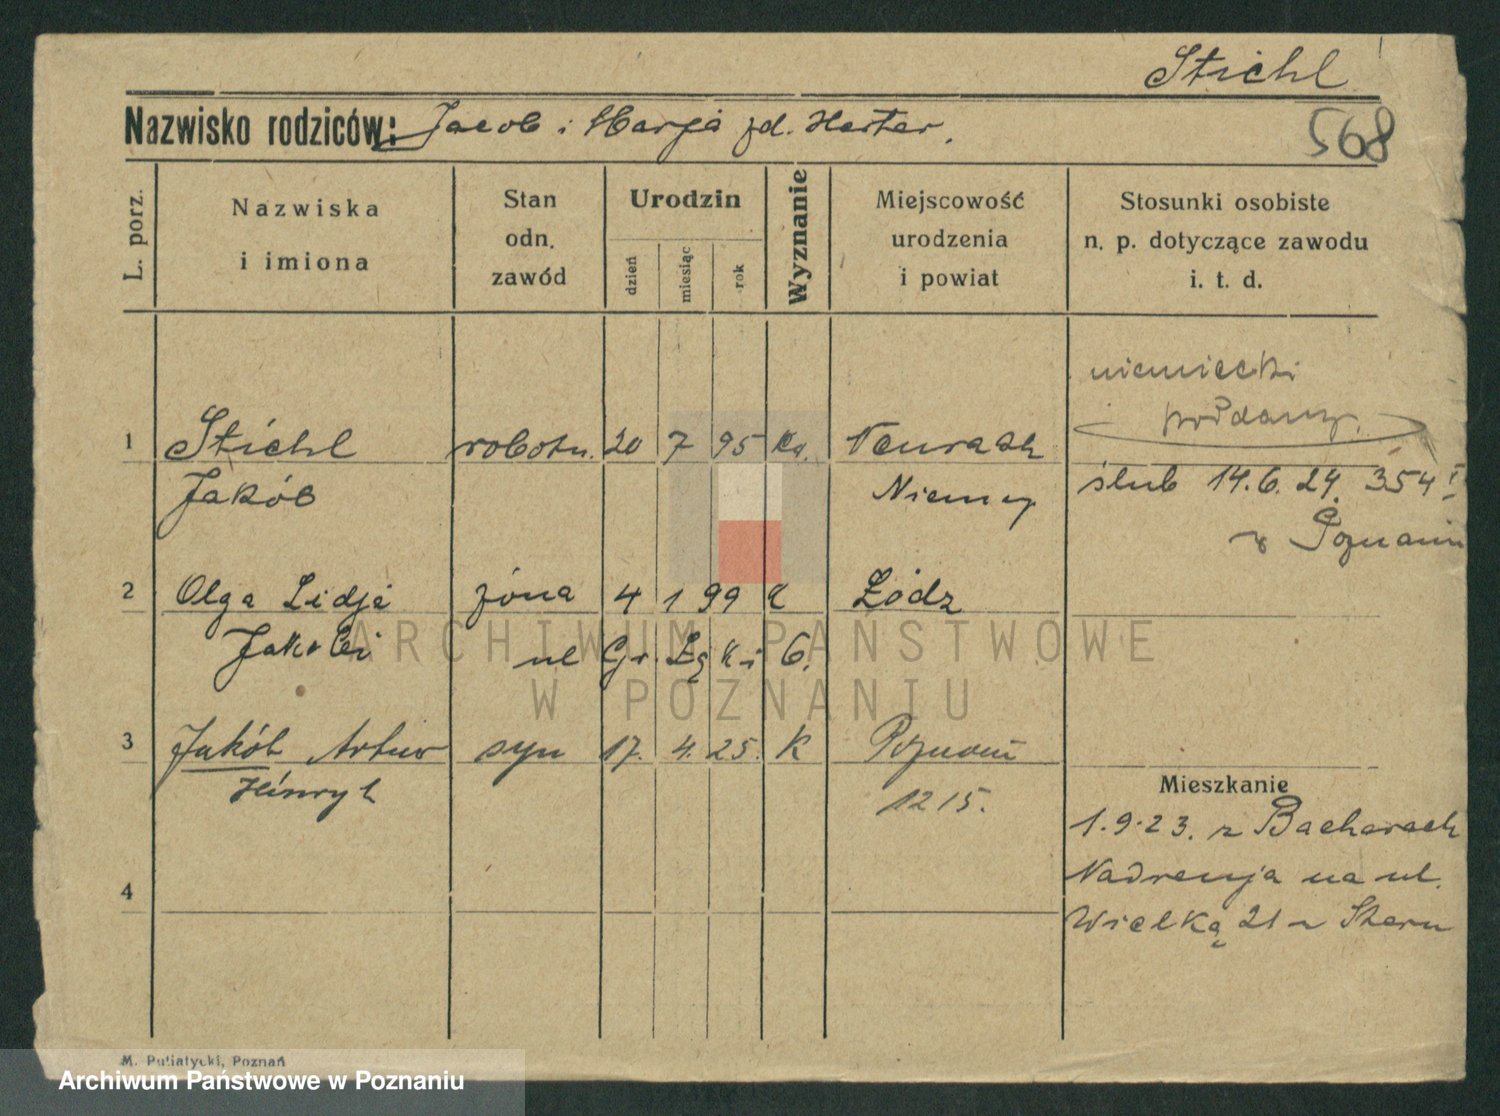 Stichl
Nazwisko rodziców: Jacob i Marja zd. Herter.
568
L. porz.
Nazwiska i imiona
Stan odn. zawód
Urodzin
dzień miesiąc rok
Wyznanie
Miejscowość urodzenia i powiat
Stosunki osobiste n. p. dotyczące zawodu i. t. d.
niemiecki
poddany.
1 Stichl robotn. 20 7 95 ka.
Jakób Niemcy
ślub 14.6.24. 354 I
w Poznaniu
2 Olga Lidja żona 4 1 99 Łódz
ul Gr. Łąki 6.
3 Jakób Artur syn 17. 4. 25. k Poznań
Henryk 1215.
Mieszkanie
1.9.23. z Bacharach
Nadrenja na ul.
Wielką 21
4
M. Putiatycki, Poznań
ARCHIWUM PAŃSTWOWE
W POZNANIU
Archiwum Państwowe w Poznaniu